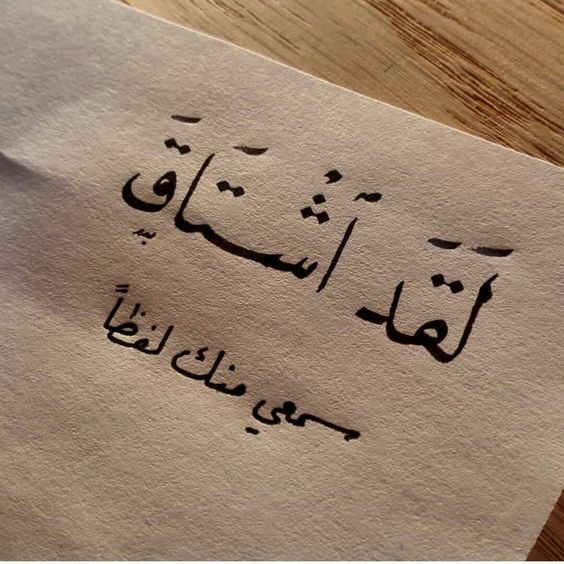 لَقَدِ اْشْتَاقَ
سمعي منك لفظاً